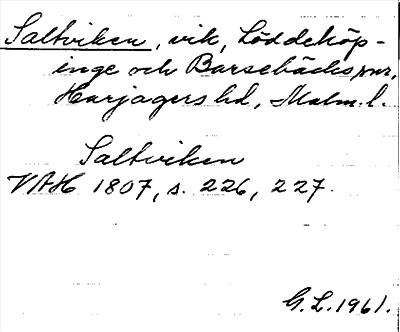 Saltviken, vik, Löddeköp-
inge och Barsebäcks snr,
Harjagers hd, Malm. l.
Saltviken
VAH 1807, s. 226, 227.
G.L. 1961.